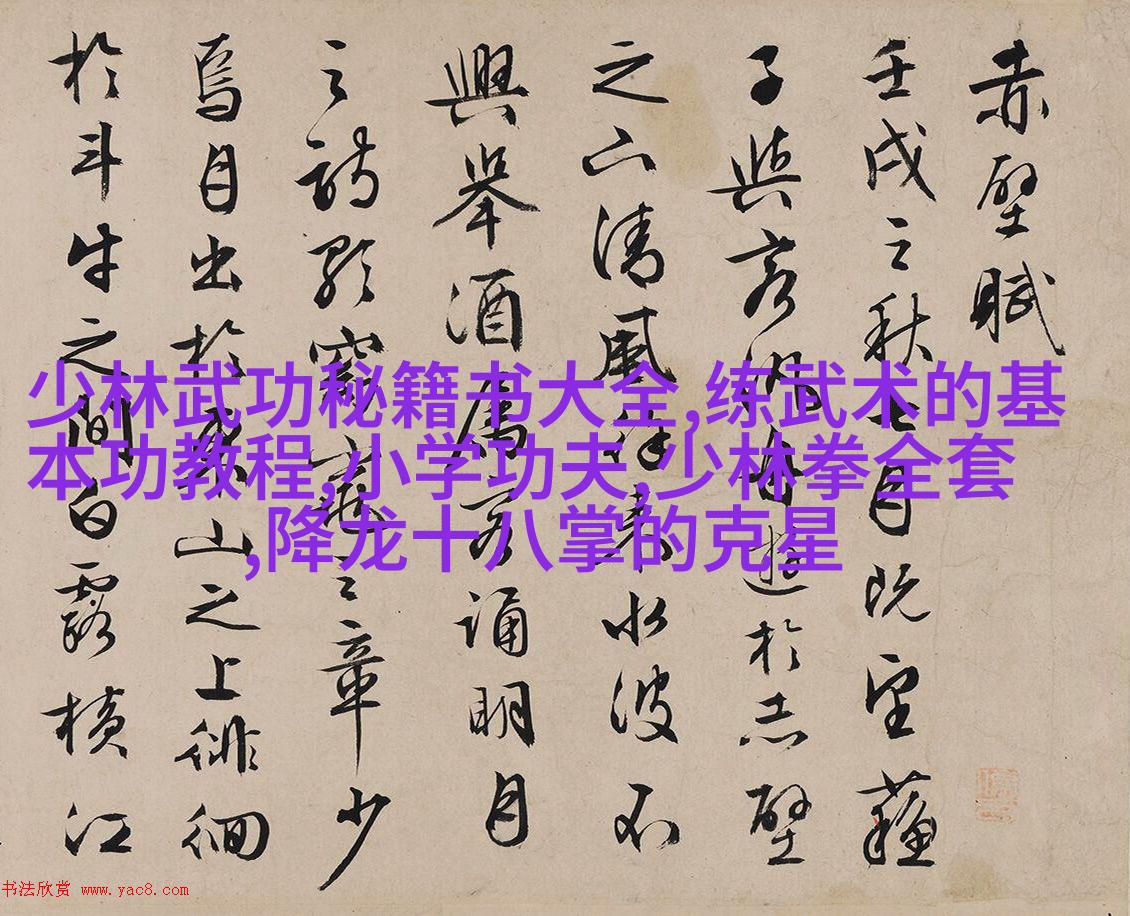 赤壁賦
壬戌之秋七月既望蘇
子與客汎舟遊於赤壁
之下清風徐來水波不
興舉酒屬客誦明月
之詩歌窈窕之章少
焉月出於東山之上徘徊
於斗牛之間白露橫江
少林武功秘籍书大全,练武术的基
本功教程,小学功夫,少林拳全套
,降龙十八掌的克星
书法欣赏 www.yac8.com